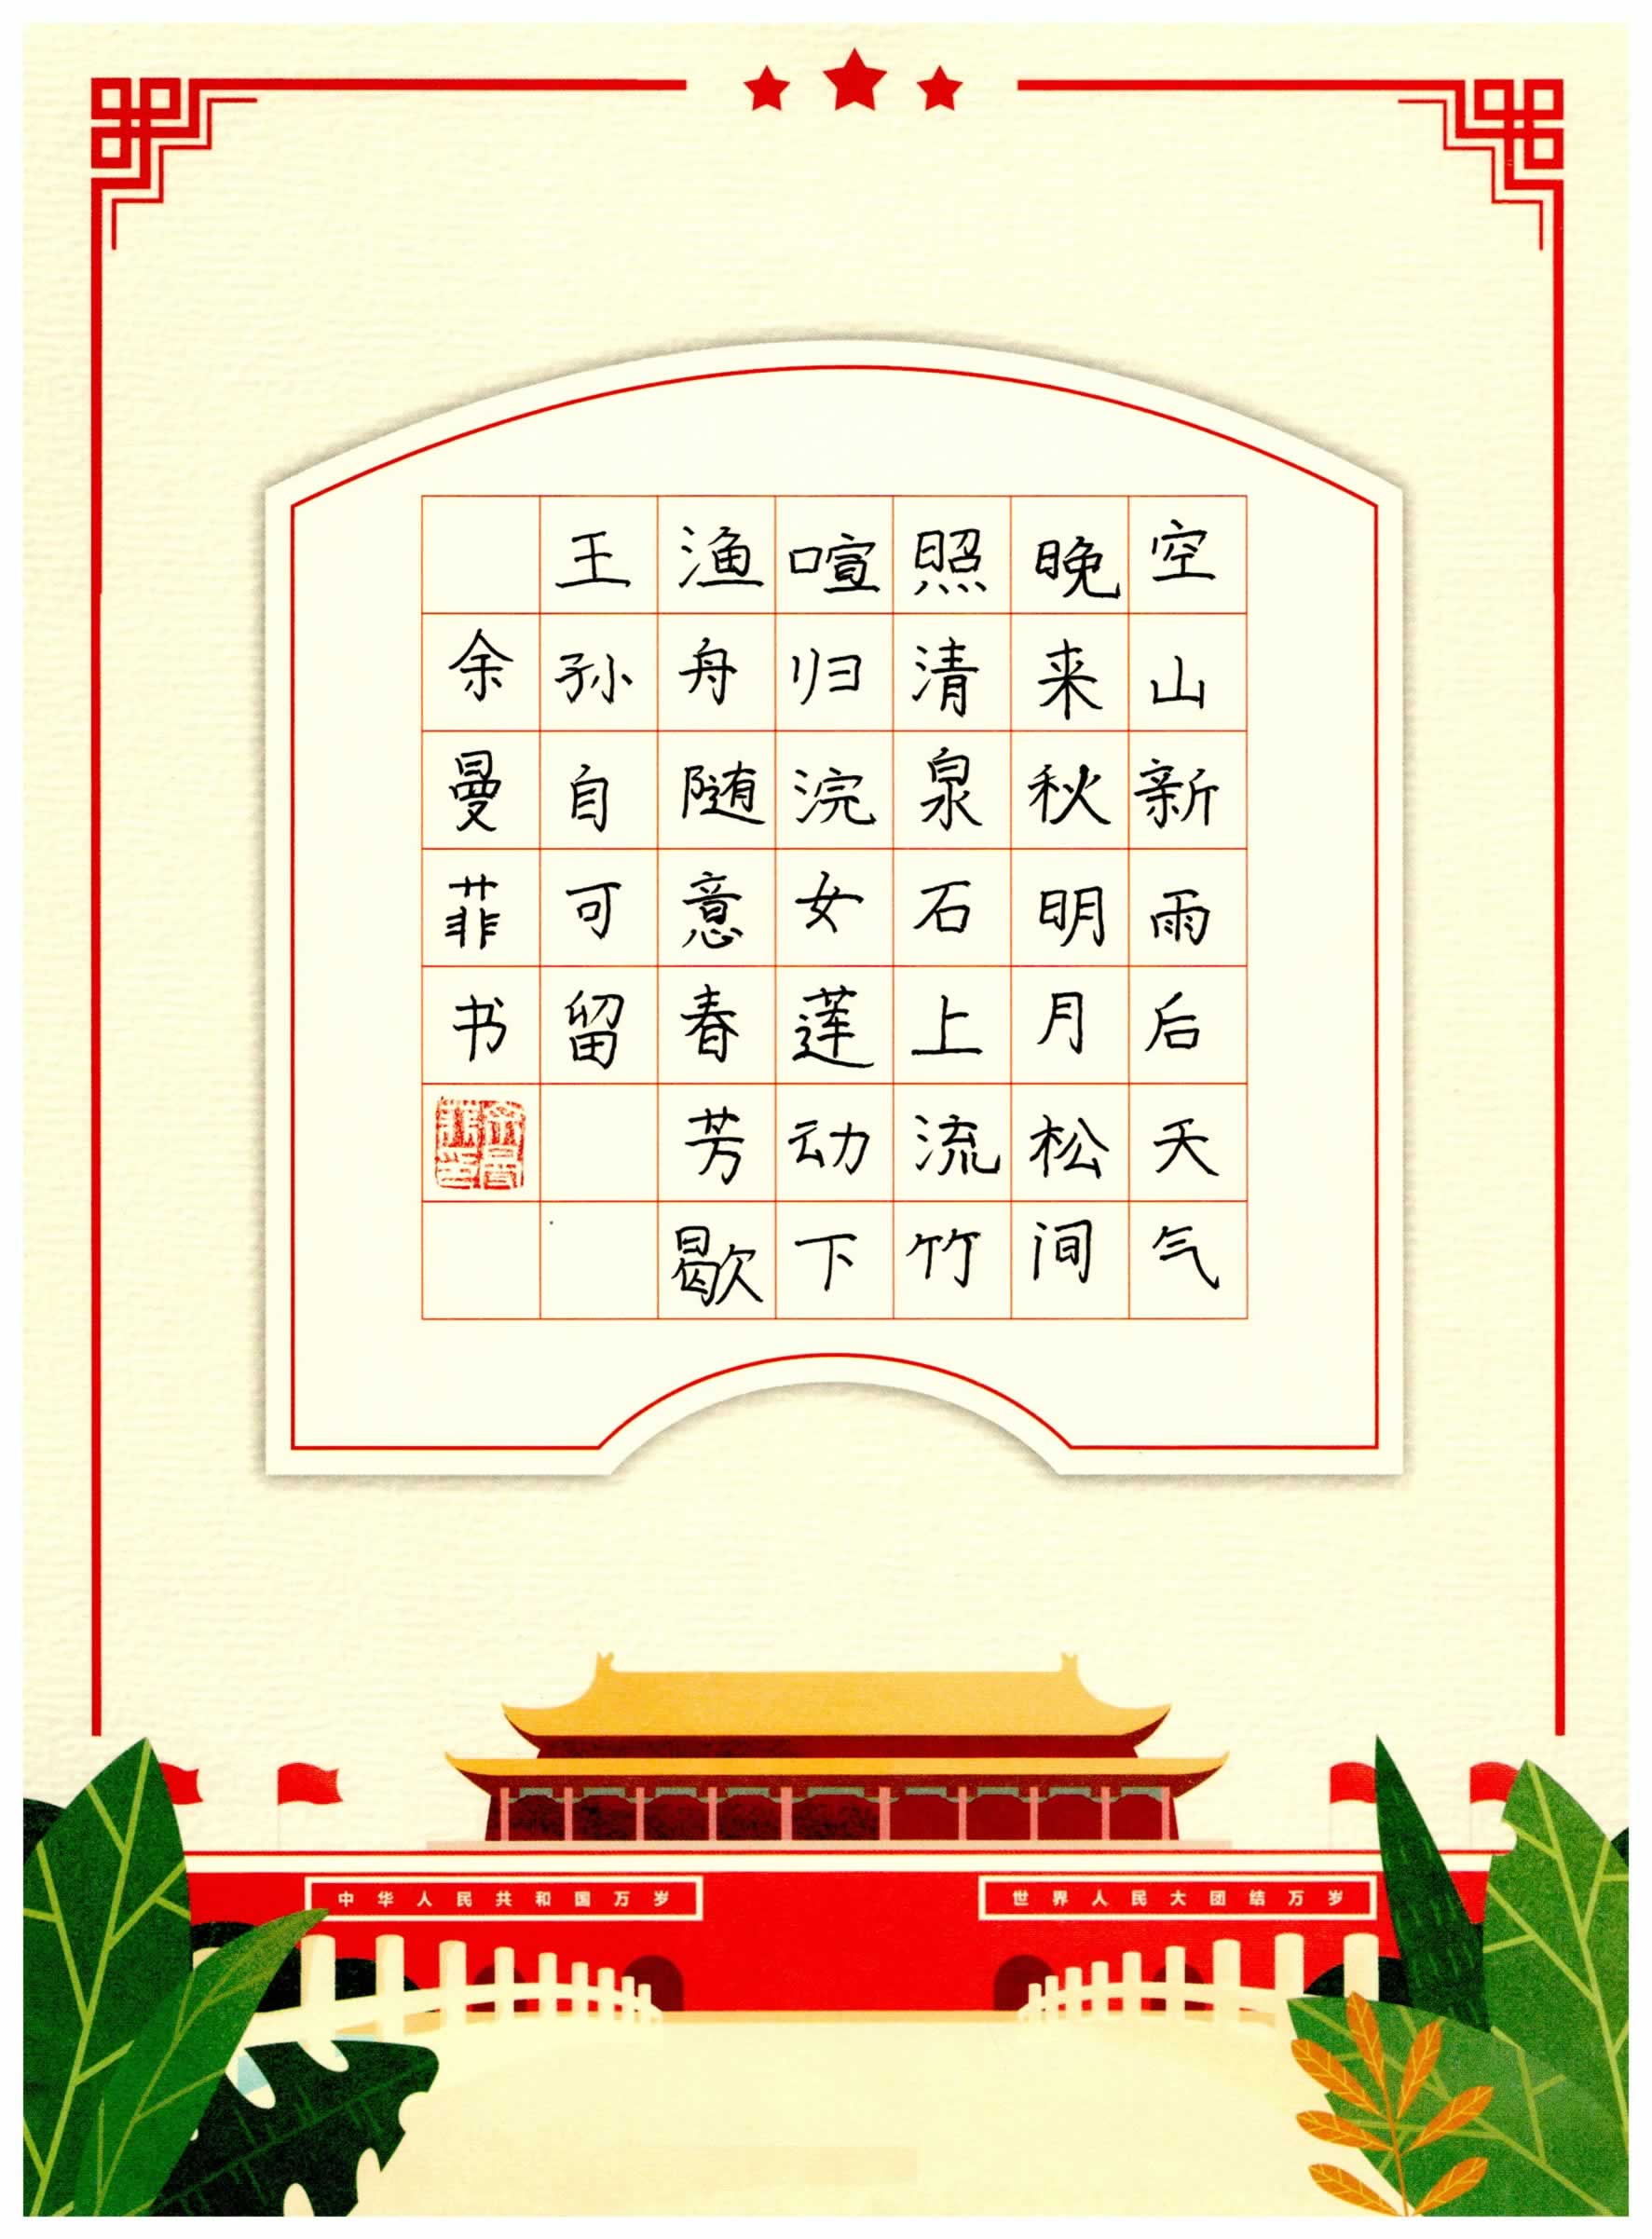 空山新雨后天气
晚来秋明月松间
照清泉石上流竹
喧归浣女莲动下
渔舟随意春芳歇
王孙自可留
余曼菲书
中华人民共和国万岁
世界人民大团结万岁